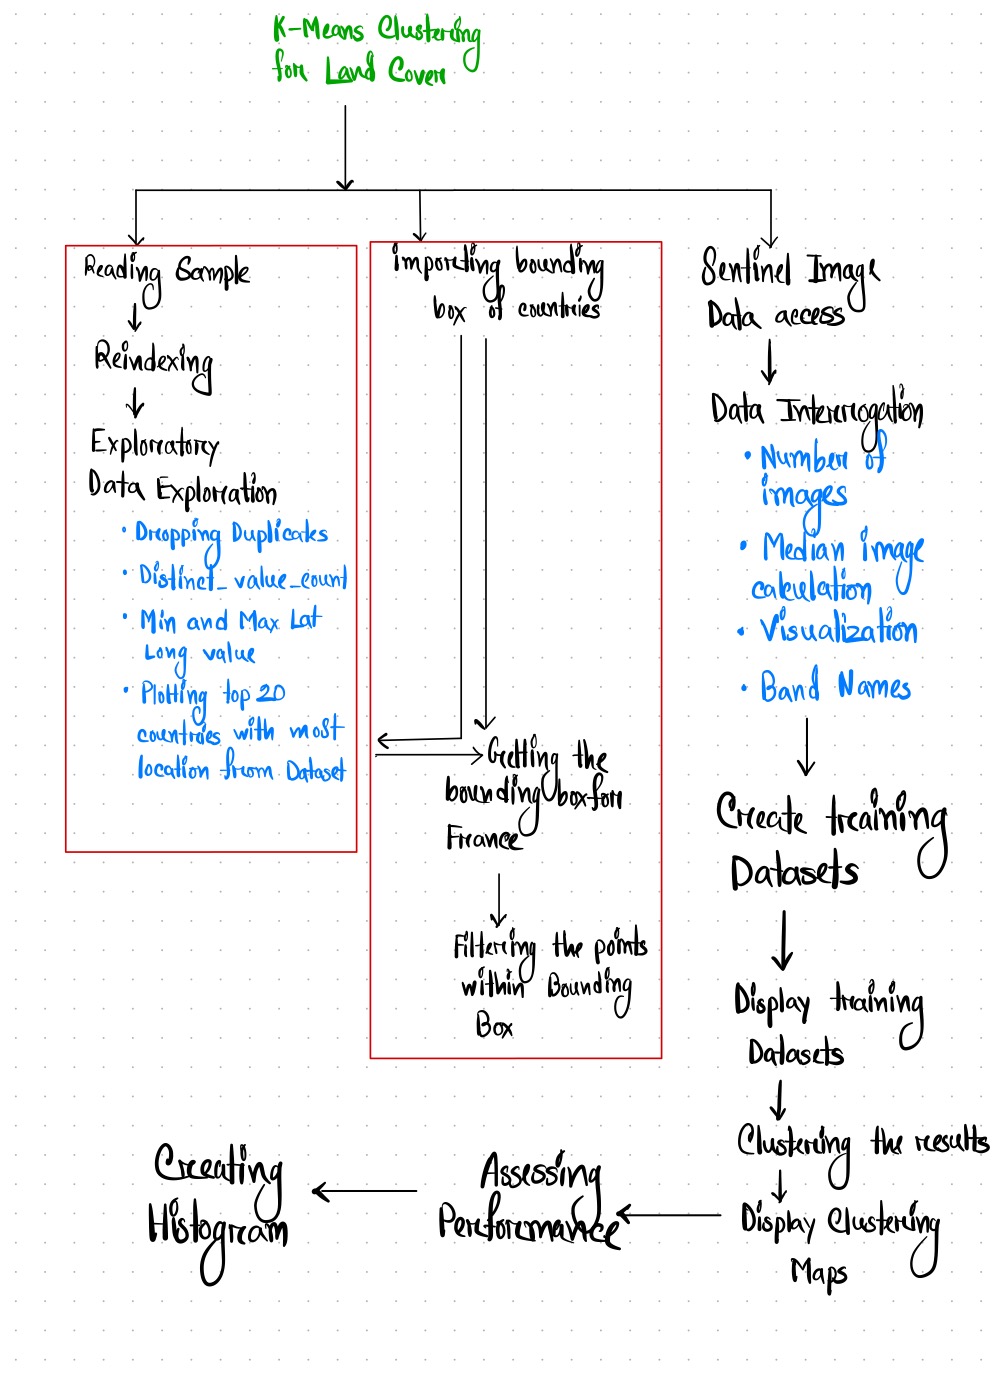 K-Means Clustering
for Land Cover
Reading Sample
Reindexing
Exploratory
Data Exploration
• Dropping Duplicates
• Distinct_value_count
• Min and Max Lat
Long value
• Plotting top 20
countries with most
location from Dataset
importing bounding
box of countries
Getting the
bounding box for
France
Filtering the points
within Bounding
Box
Sentinel Image
Data access
Data Interrogation
• Number of
images
• Median image
calculation
• Visualization
• Band Names
Create training
Datasets
Display training
Datasets
Clustering the results
Display Clustering
Maps
Assessing
Performance
Creating
Histogram